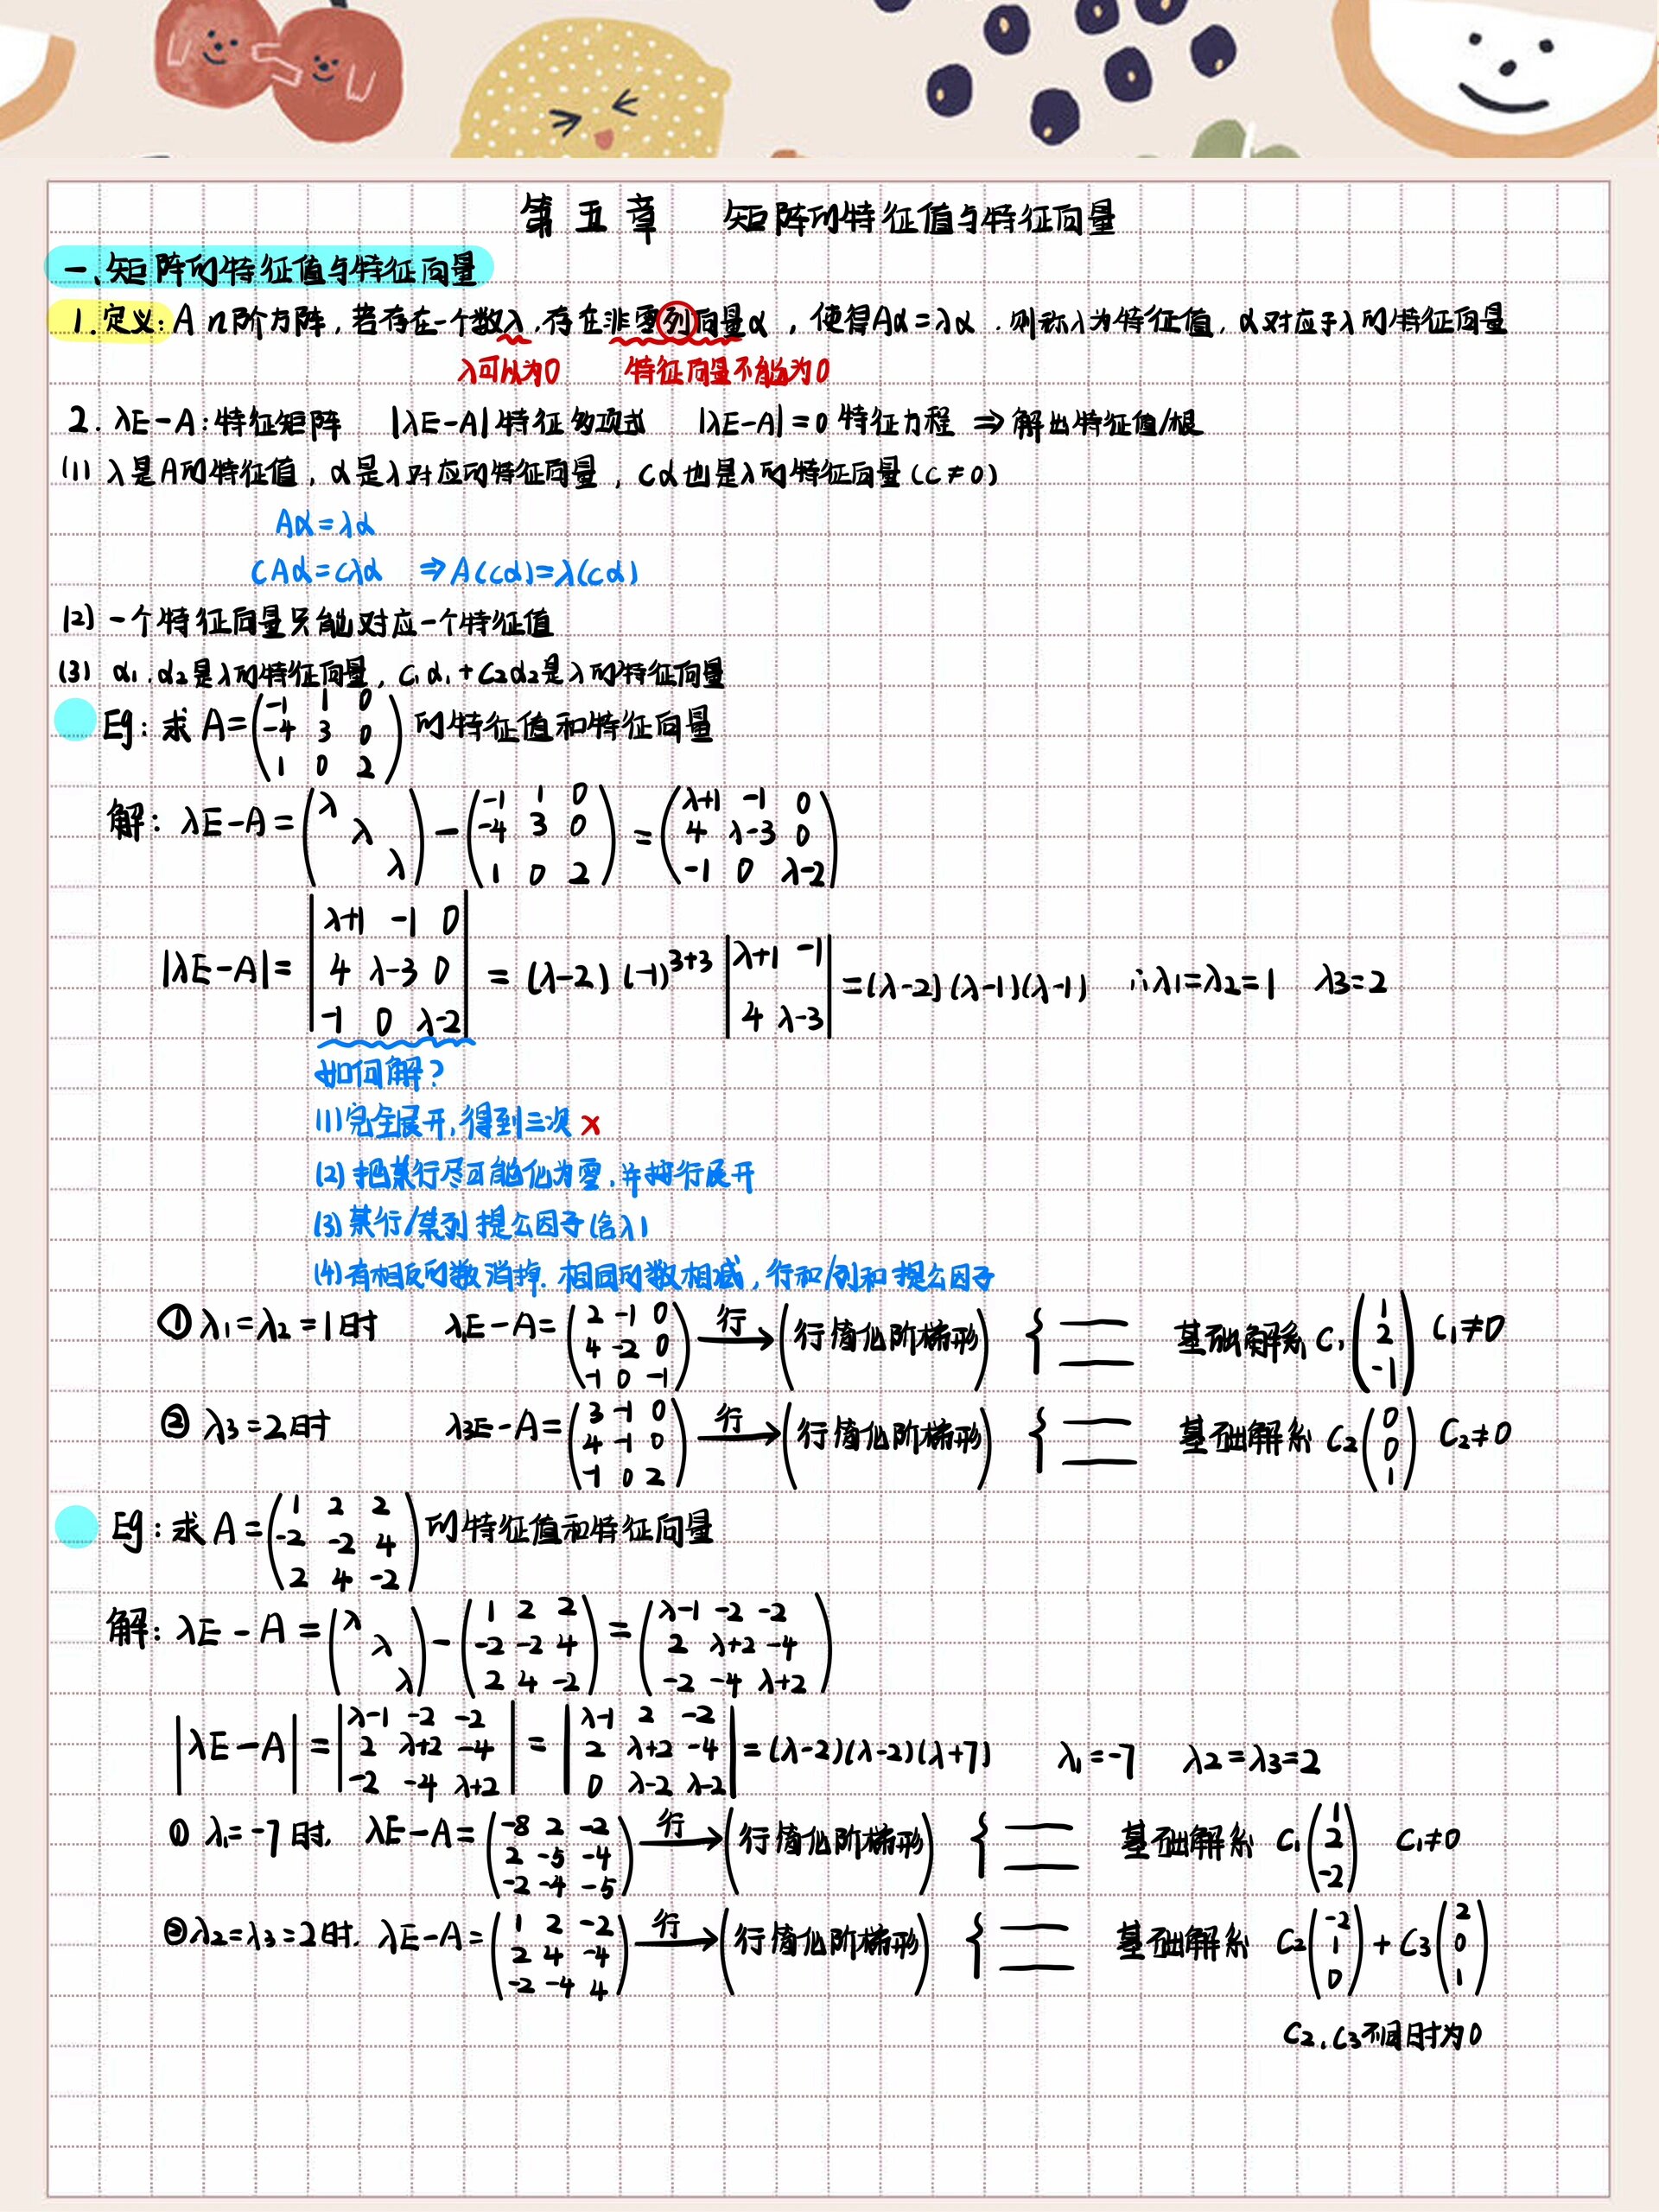 第五章 矩阵的特征值与特征向量
一、矩阵的特征值与特征向量
1.定义:A n阶方阵,若存在一个数λ,存在非零列向量α,使得Aα=λα.则称λ为特征值,α对应于λ的特征向量
λ可以为0 特征向量不能为0
2. λE-A:特征矩阵 |λE-A|特征多项式 |λE-A|=0 特征方程 ⇒ 解出特征值/根
(1) λ是A的特征值,α是λ对应的特征向量,Cα也是λ的特征向量(C≠0)
Aα=λα
CAα=Cλα ⇒A(Cα)=λ(Cα)
(2) 一个特征向量只能对应一个特征值
(3) α1.α2是λ的特征向量,C1α1+C2α2是λ的特征向量
Eg:求A=(-1 1 0
-4 3 0
1 0 2)的特征值和特征向量
解: λE-A=(λ
λ
λ)-(-1 1 0
-4 3 0
1 0 2)=(λ+1 -1 0
4 λ-3 0
-1 0 λ-2)
|λE-A|=|λ+1 -1 0
4 λ-3 0
-1 0 λ-2|=(λ-2)(-1)^3+3 |λ+1 -1
4 λ-3|=(λ-2)(λ-1)(λ-1) ∴λ1=λ2=1 λ3=2
如何解?
(1)完全展开,得到三次 ×
(2)把某行尽可能化为零,并按行展开
(3)某行/某列提公因子(含λ)
(4)有相反的数消掉.相同的数相减,行和/列和提公因子
① λ1=λ2=1时 λE-A=(2 -1 0
4 -2 0
-1 0 -1) 行→(行简化阶梯形) { 基础解系 C1(1
2
-1) C1≠0
② λ3=2时 λ3E-A=(3 -1 0
4 -1 0
-1 0 2) 行→(行简化阶梯形) { 基础解系 C2(0
0
1) C2≠0
Eg:求A=(1 2 2
-2 -2 4
2 4 -2)的特征值和特征向量
解: λE-A=(λ
λ
λ)-(1 2 2
-2 -2 4
2 4 -2)=(λ-1 -2 -2
2 λ+2 -4
-2 -4 λ+2)
|λE-A|=|λ-1 -2 -2
2 λ+2 -4
-2 -4 λ+2|=|λ-1 2 -2
2 λ+2 -4
0 λ-2 λ-2|=(λ-2)(λ-2)(λ+7) λ1=-7 λ2=λ3=2
① λ1=-7时. λE-A=(-8 2 -2
2 -5 -4
-2 -4 -5) 行→(行简化阶梯形) { 基础解系 C1(1
2
-2) C1≠0
②λ2=λ3=2时. λE-A=(1 2 -2
2 4 -4
-2 -4 4) 行→(行简化阶梯形) { 基础解系 C2(-2
1
0)+C3(2
0
1)
C2.C3不同时为0